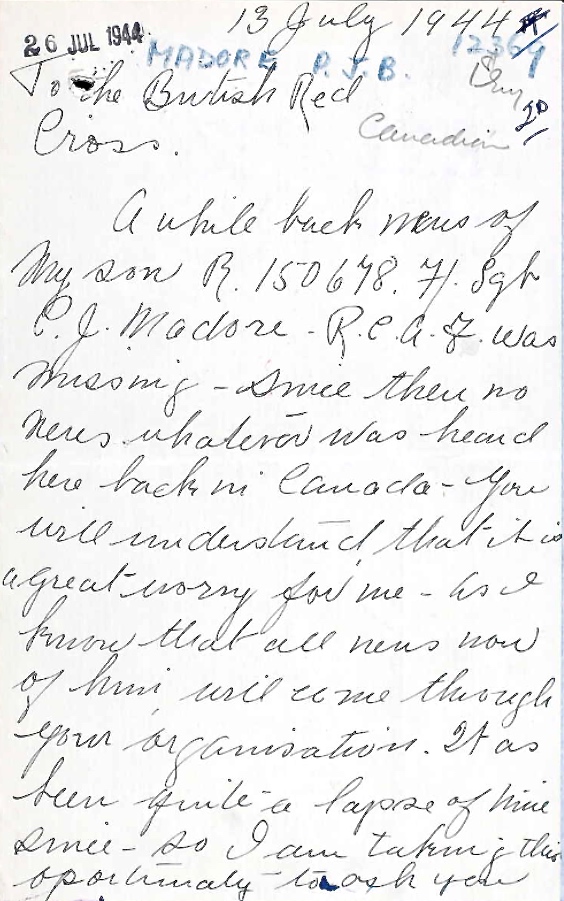 13 July 1944
26 JUL 1944
MADORE P.J.B. 12369
To the British Red
Cross.
Canadian
A while back news of
My son R. 150678. Fl. Sgt
P. J. Madore - R.C.A.F. was
missing - since then no
news whatever was heard
here back in Canada - You
will understand that it is
a great worry for me - as I
know that all news now
of him will come through
your organisation. It as
been quite a lapse of time
since - so I am taking this
oportunaty to ask you